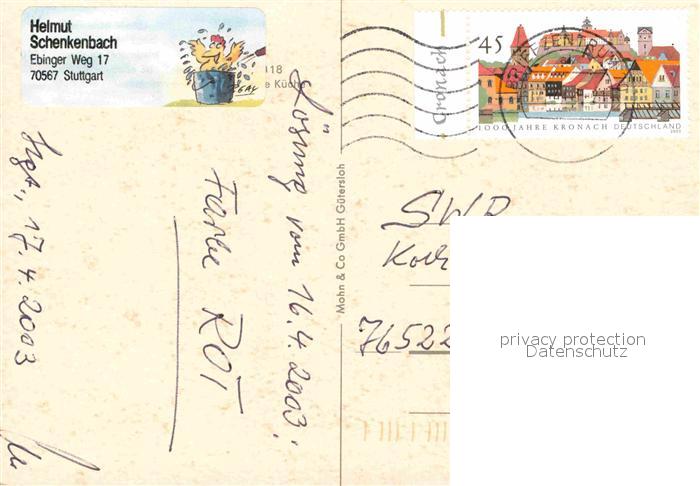 Helmut
Schenkenbach
Ebinger Weg 17
70567 Stuttgart
GAY
118
e Küche
Lösung vom 16.4.2003:
Farbe ROT
17.4.2003
Mohn & Co GmbH Gütersloh
Cronach
45
1000 JAHRE KRONACH DEUTSCHLAND
2003
SWR
76522
privacy protection
Datenschutz